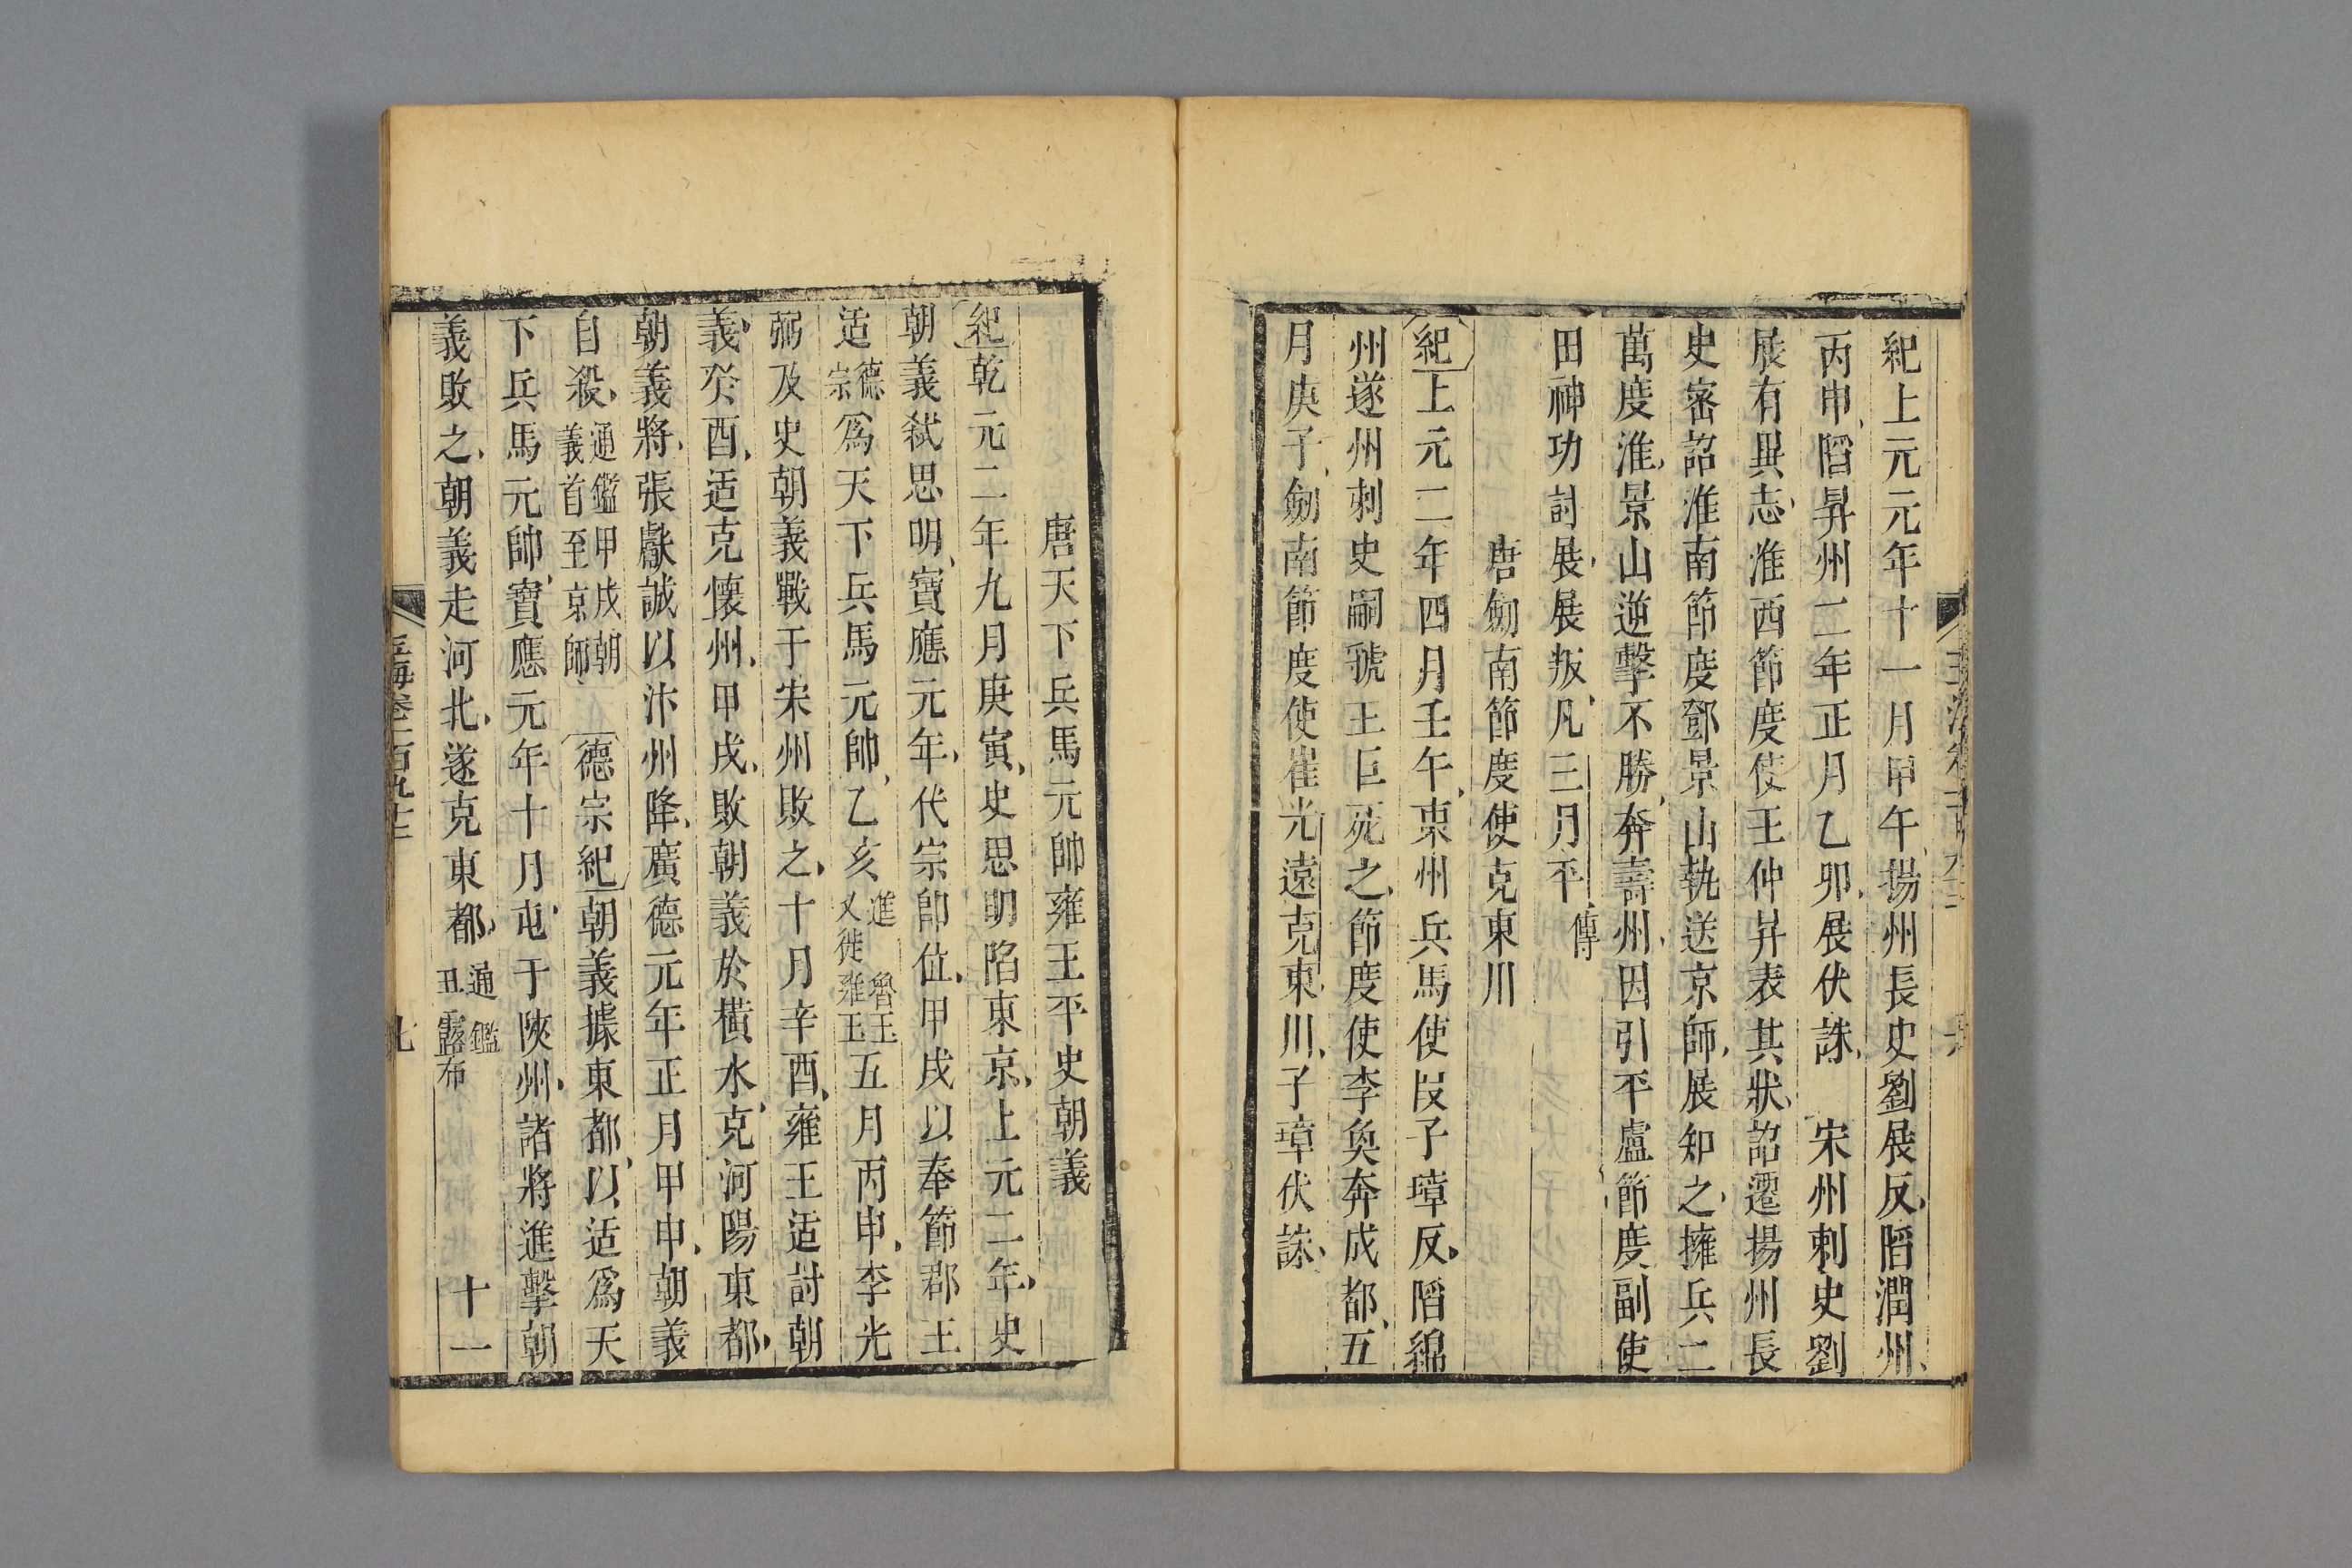 紀上元元年十一月甲午揚州長史劉展反陷潤州
丙申陷昇州二年正月乙卯展伏誅　宋州刺史劉
展有異志淮西節度使王仲昇表其狀詔遷揚州長
史密詔淮南節度鄧景山執送京師展知之擁兵二
萬度淮景山逆擊不勝奔壽州因引平盧節度副使
田神功討展展叛凡三月平傳
唐劒南節度使克東川
紀上元二年四月壬午東州兵馬使段子璋反陷綿
州遂州刺史嗣虢王巨死之節度使李奐奔成都五
月庚子劒南節度使崔光遠克東川子璋伏誅
唐天下兵馬元帥雍王平史朝義
紀乾元二年九月庚寅史思明陷東京上元二年史
朝義弒思明寶應元年代宗卽位甲戌以奉節郡王
适德宗爲天下兵馬元帥乙亥進魯王又徙雍王五月丙申李光
弼及史朝義戰于宋州敗之十月辛酉雍王适討朝
義癸酉适克懷州甲戌敗朝義於橫水克河陽東都
朝義將張獻誠以汴州降廣德元年正月甲申朝義
自殺通鑑甲戌朝義首至京師德宗紀朝義據東都以适爲天
下兵馬元帥寶應元年十月屯于陝州諸將進擊朝
義敗之朝義走河北遂克東都通鑑丑露布
玉海卷一百九十二
十一